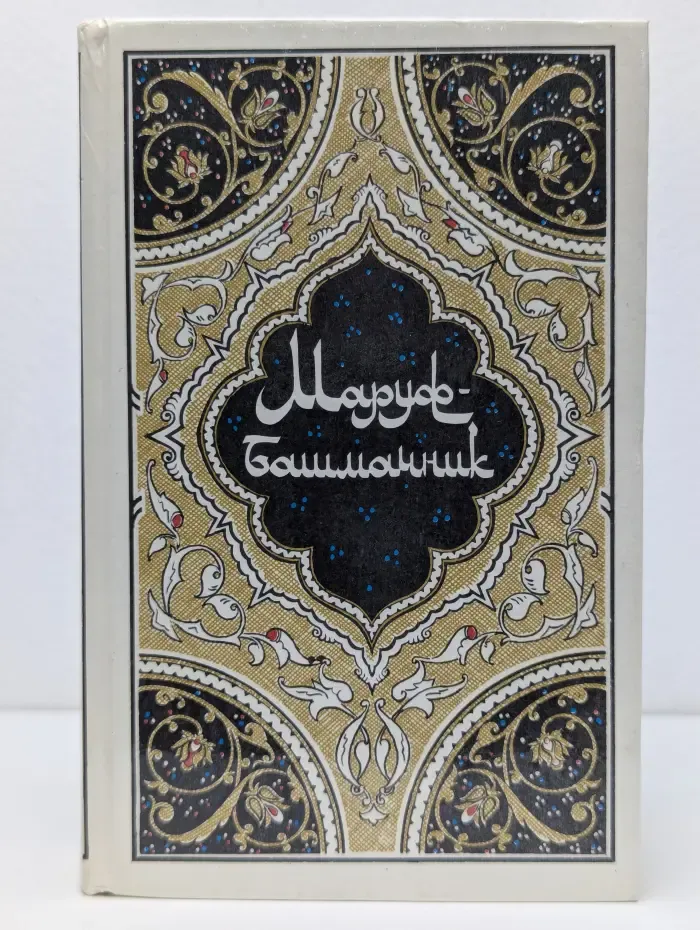 Маруф-
башмачник